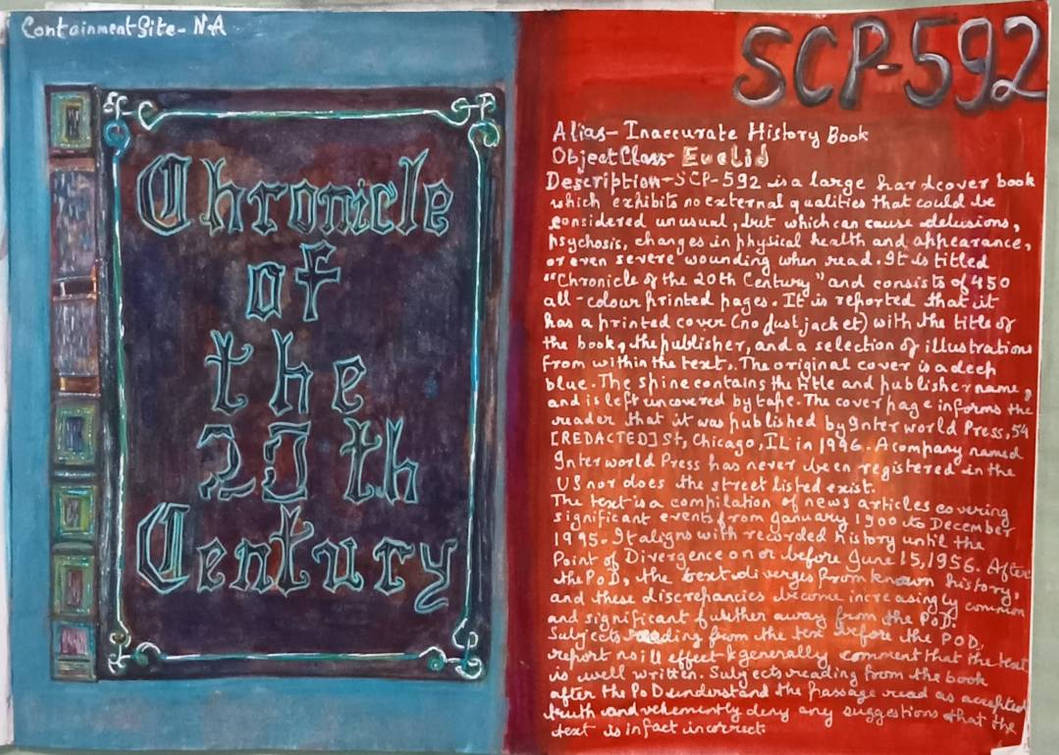 Containment Site - N.A
Chronicle
of
the
20th
Century
SCP-592
Alias- Inaccurate History Book
Object Class- Euclid
Description-SCP-592 is a large hardcover book
which exhibits no external qualities that could be
considered unusual, but which can cause delusions,
psychosis, changes in physical health and appearance,
or even severe wounding when read. It is titled
"Chronicle of the 20th Century" and consists of 450
all-colour printed pages. It is reported that it
has a printed cover (no dust jacket) with the title of
the book, the publisher, and a selection of illustrations
from within the text. The original cover is a deep
blue. The spine contains the title and publisher name,
and is left uncovered by tape. The cover page informs the
reader that it was published by Interworld Press, 54
[REDACTED] St, Chicago, IL in 1996. A company named
Interworld Press has never been registered in the
US nor does the street listed exist.
The text is a compilation of news articles covering
significant events from January 1900 to December
1995. It aligns with recorded history until the
Point of Divergence on or before June 15, 1956. After
the PoD, the text diverges from known history,
and these discrepancies become increasingly common
and significant further away from the PoD.
Subjects reading from the text before the POD,
report no ill effect & generally comment that the text
is well written. Subjects reading from the book
after the PoD understand the passage read as accepted
truth and vehemently deny any suggestions that the
text is in fact incorrect.